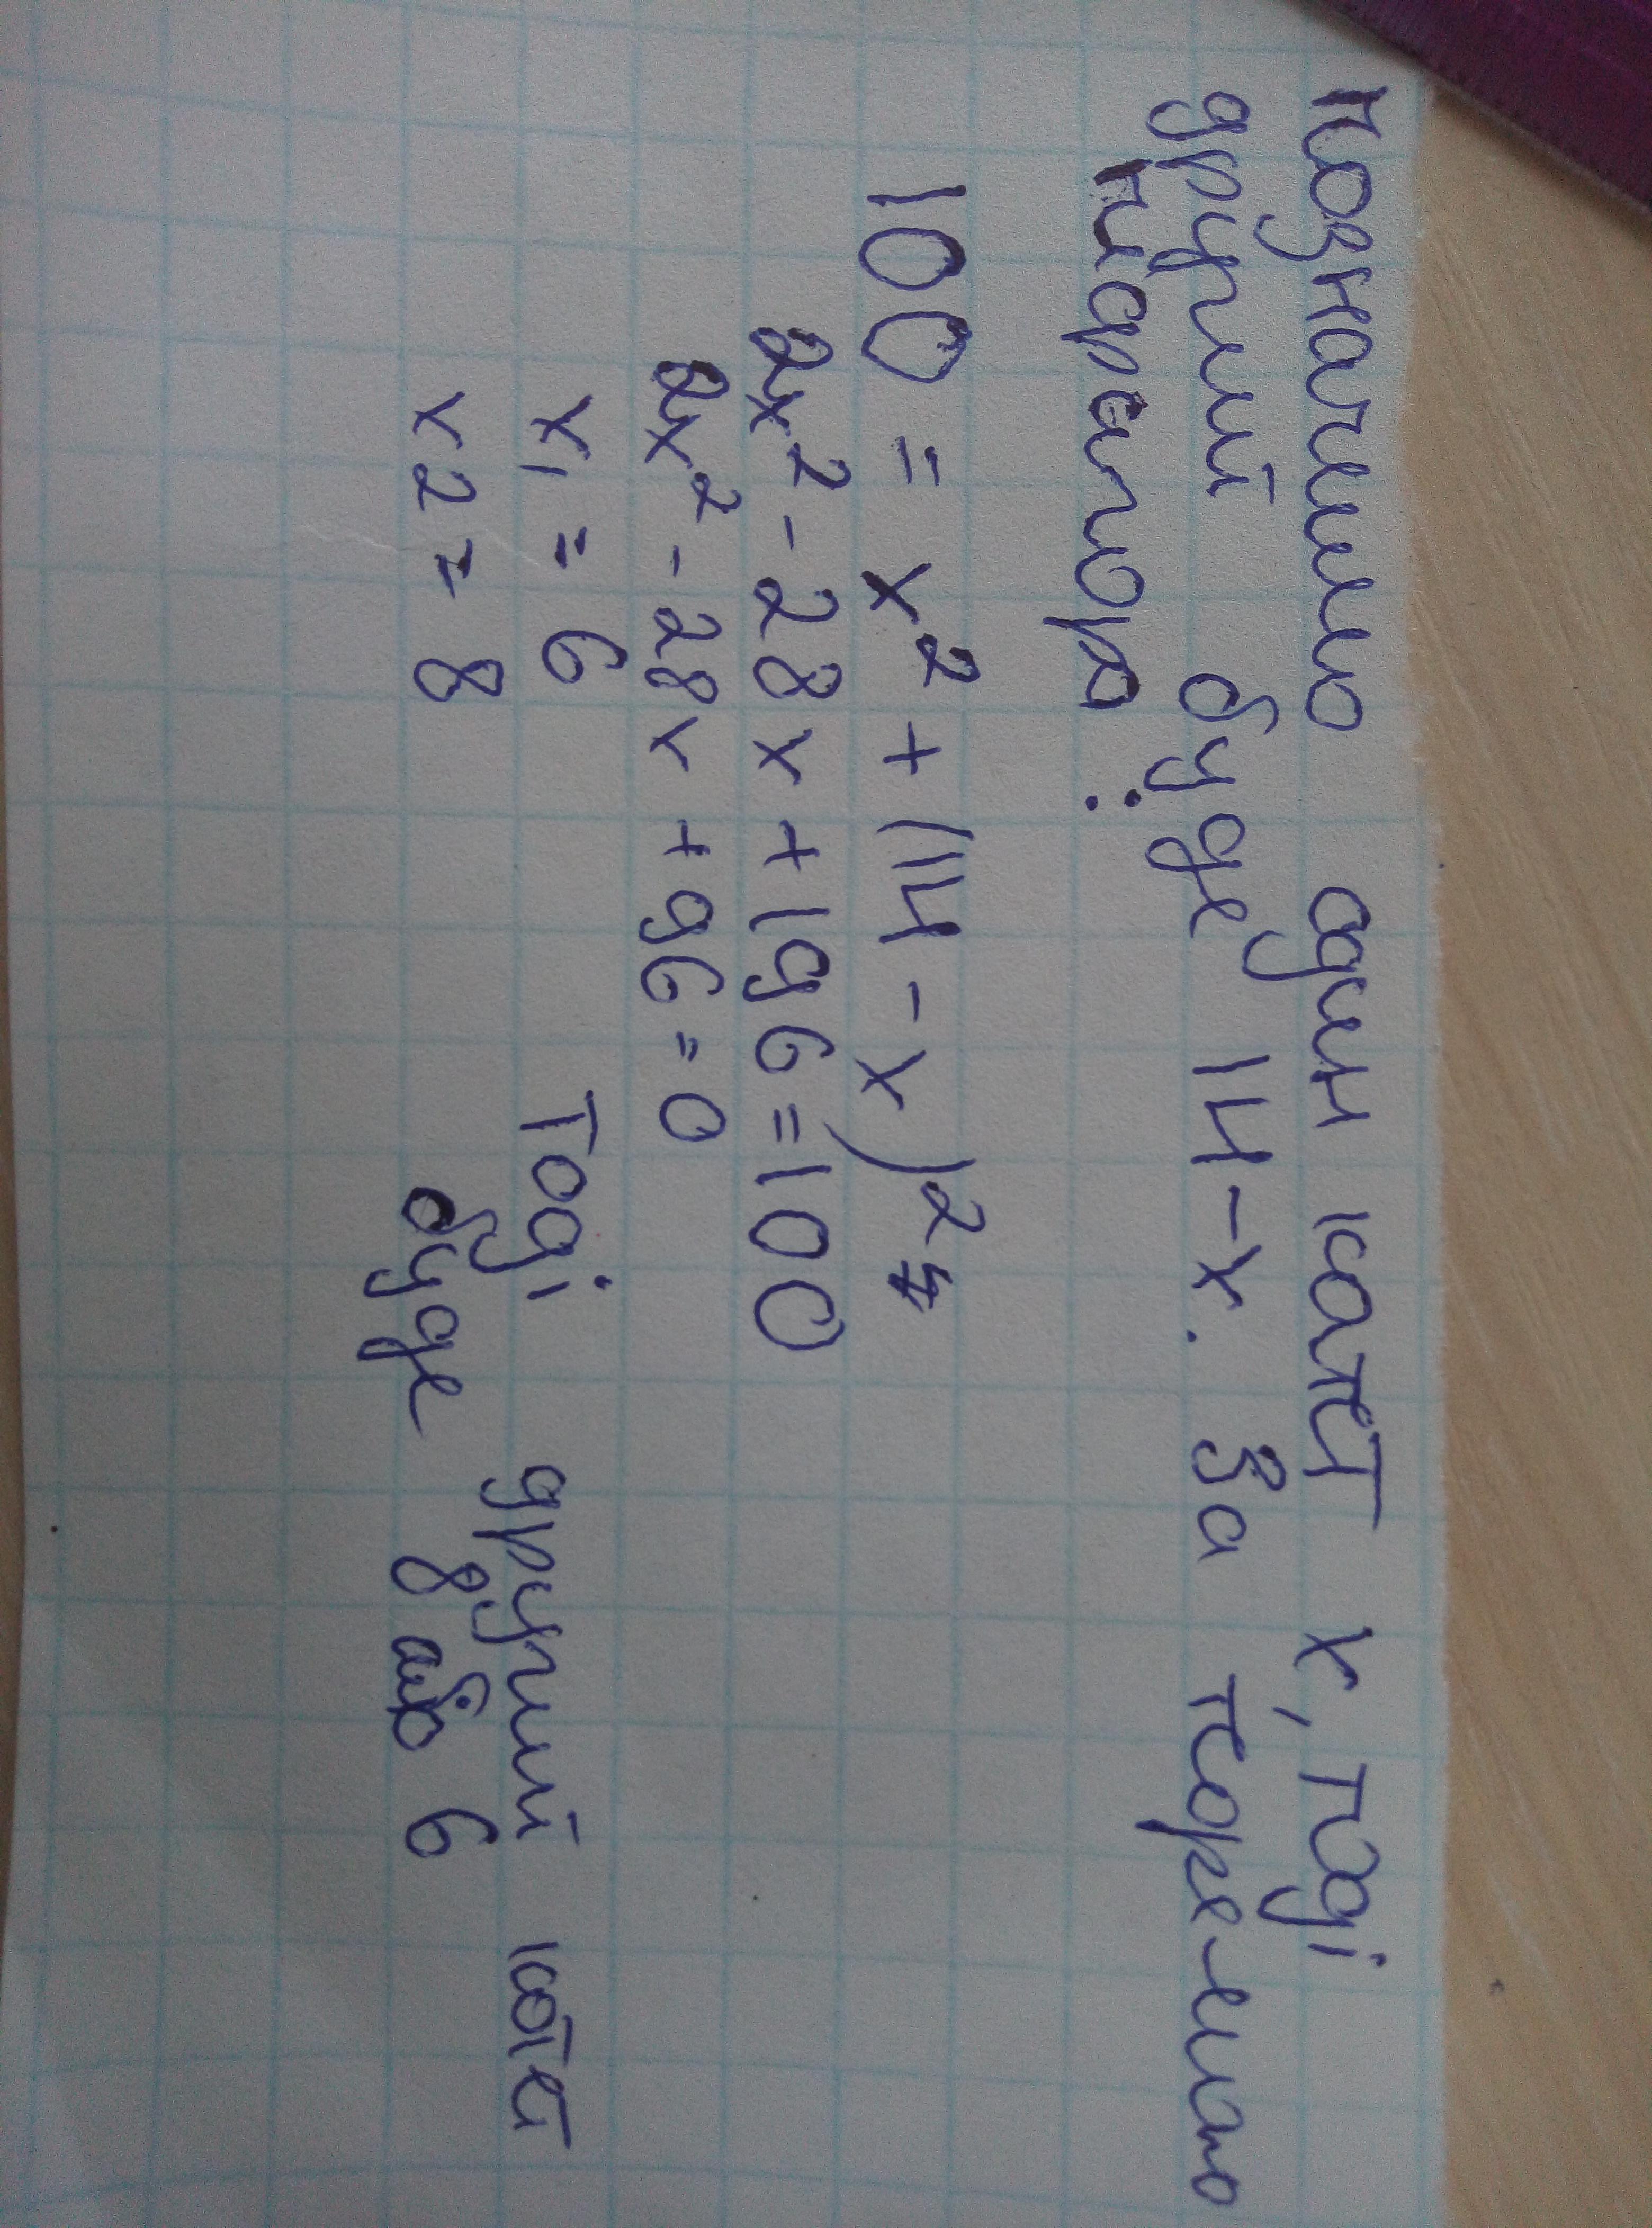 позначимо один катет х, тоді
другий буде 14-х. За теоремою
піфагора:
100 = x² + (14 - x)²
2x² - 28x + 196 = 100
2x² - 28x + 96 = 0
x₁ = 6 Тоді другий катет
x2 = 8 буде 8 або 6